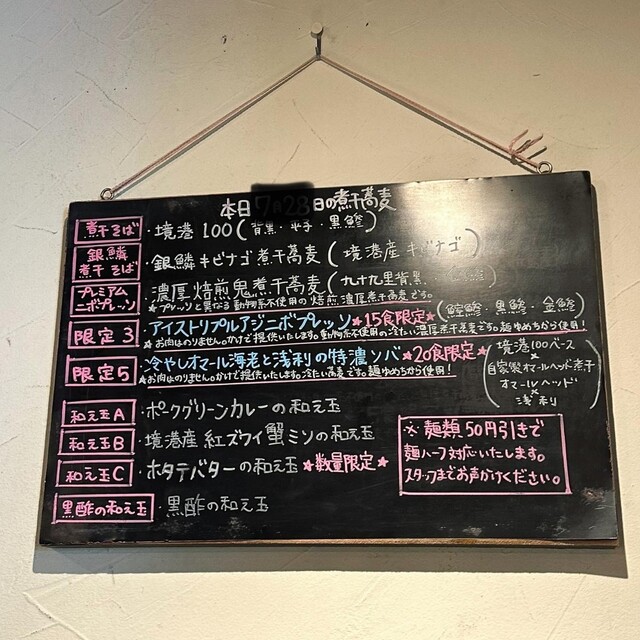 本日7月23日の煮干蕎麦
煮干そば ・境港100(背黒・平子・黒鯵)
銀鱗煮干そば ・銀鱗キビナゴ煮干蕎麦(境港産キビナゴ)
プレミアムニボプレッソ ・濃厚焙煎鬼煮干蕎麦(九十九里背黒
★プレッソと異なる動物系不使用の焙煎濃厚煮干蕎麦です。
限定3 ・アイストリプルアジニボプレッソ★15食限定★(鯵・黒鯵・金鯵)
★お肉はのりません。かけで提供いたします。動物系不使用の冷たい濃厚煮干蕎麦です。麺ゆめちから使用!
限定5 ・冷やしオマール海老と浅利の特濃ソバ★20食限定★
★お肉はのりません。かけで提供いたします。冷たい蕎麦です。麺ゆめちから使用!
(境港100ベース
×
自家製オマールヘッド煮干
オマールヘッド
×
浅利)
和え玉A ・ポークグリーンカレーの和え玉
和え玉B ・境港産紅ズワイ蟹ミソの和え玉
和え玉C ・ホタテバターの和え玉★数量限定★
黒酢の和え玉 ・黒酢の和え玉
※麺類50円引きで
麺ハーフ対応いたします。
スタッフまでお声がけください。